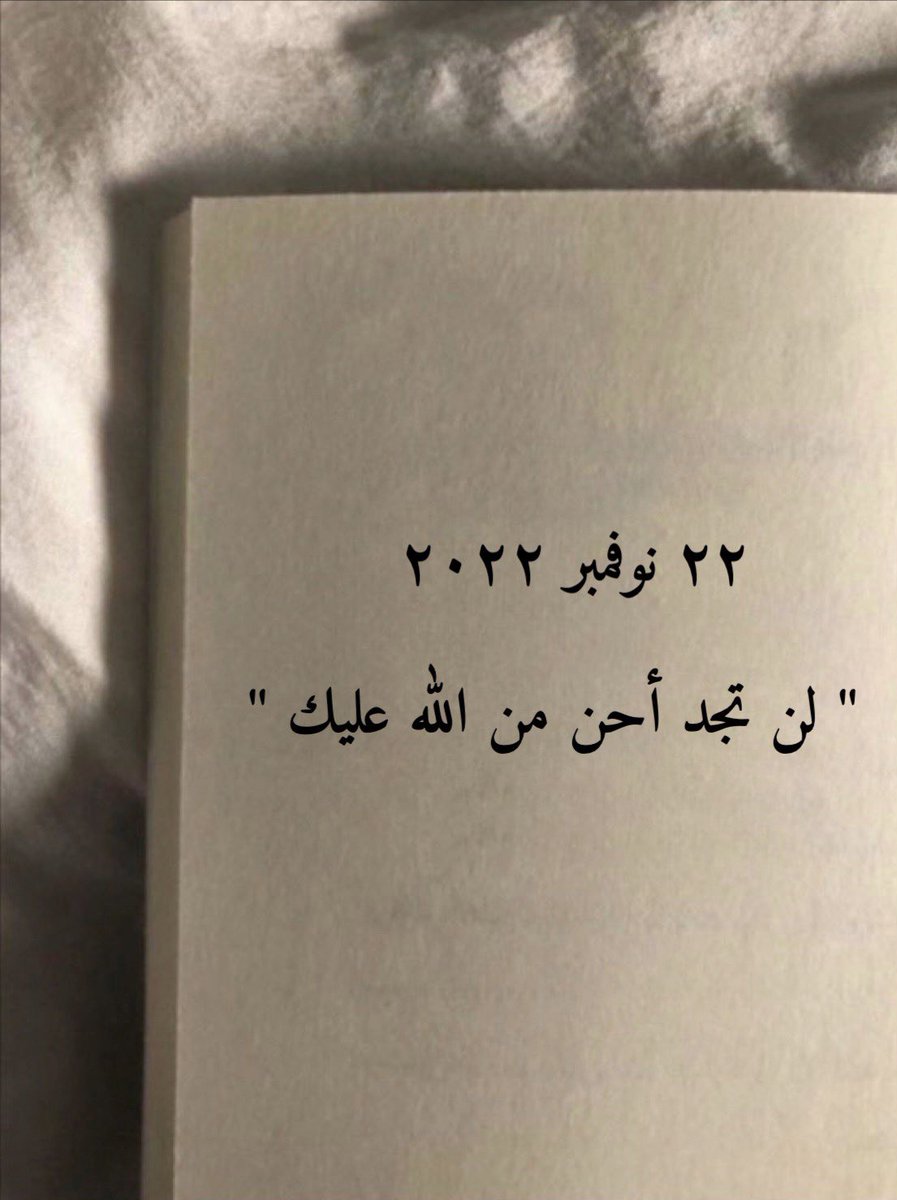 ٢٢ نوفمبر ٢٠٢٢
" لن تجد أحن من الله عليك "